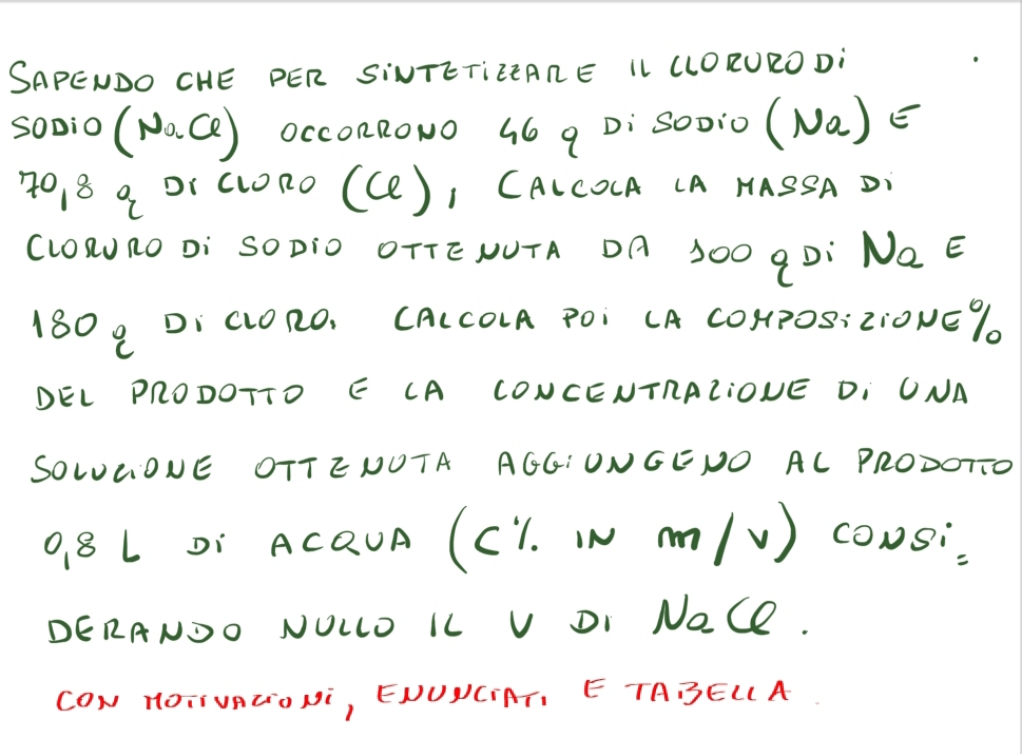 SAPENDO CHE PER SINTETIZZARE IL CLORURO DI
SODIO (NaCl) OCCORRONO 46 g DI SODIO (Na) E
70,8 g DI CLORO (Cl), CALCOLA LA MASSA DI
CLORURO DI SODIO OTTENUTA DA 100 g DI Na E
180 g DI CLORO. CALCOLA POI LA COMPOSIZIONE %
DEL PRODOTTO E LA CONCENTRAZIONE DI UNA
SOLUZIONE OTTENUTA AGGIUNGENDO AL PRODOTTO
0,8 L DI ACQUA (C% IN m/v) CONSI=
DERANDO NULLO IL V DI NaCl.
CON MOTIVAZIONI, ENUNCIATI E TABELLA